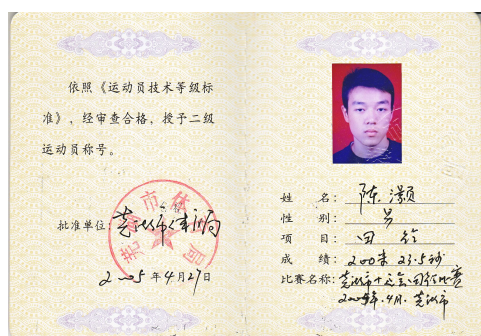 依照《运动员技术等级标
准》，经审查合格，授予二级
运动员称号。
批准单位：芜湖市体育局
2005年4月27日
姓 名：陈灏
性 别：男
项 目：田径
成 绩：200米 23.5秒
比赛名称：芜湖市十运会田径比赛
2005年.4月.芜湖市